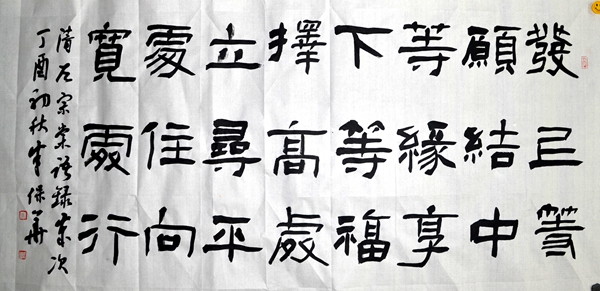 發上等
願結中
等緣享
下等福
擇高處
立尋平
處住向
寬處行
清左宗棠語錄歲次
丁酉初秋保華